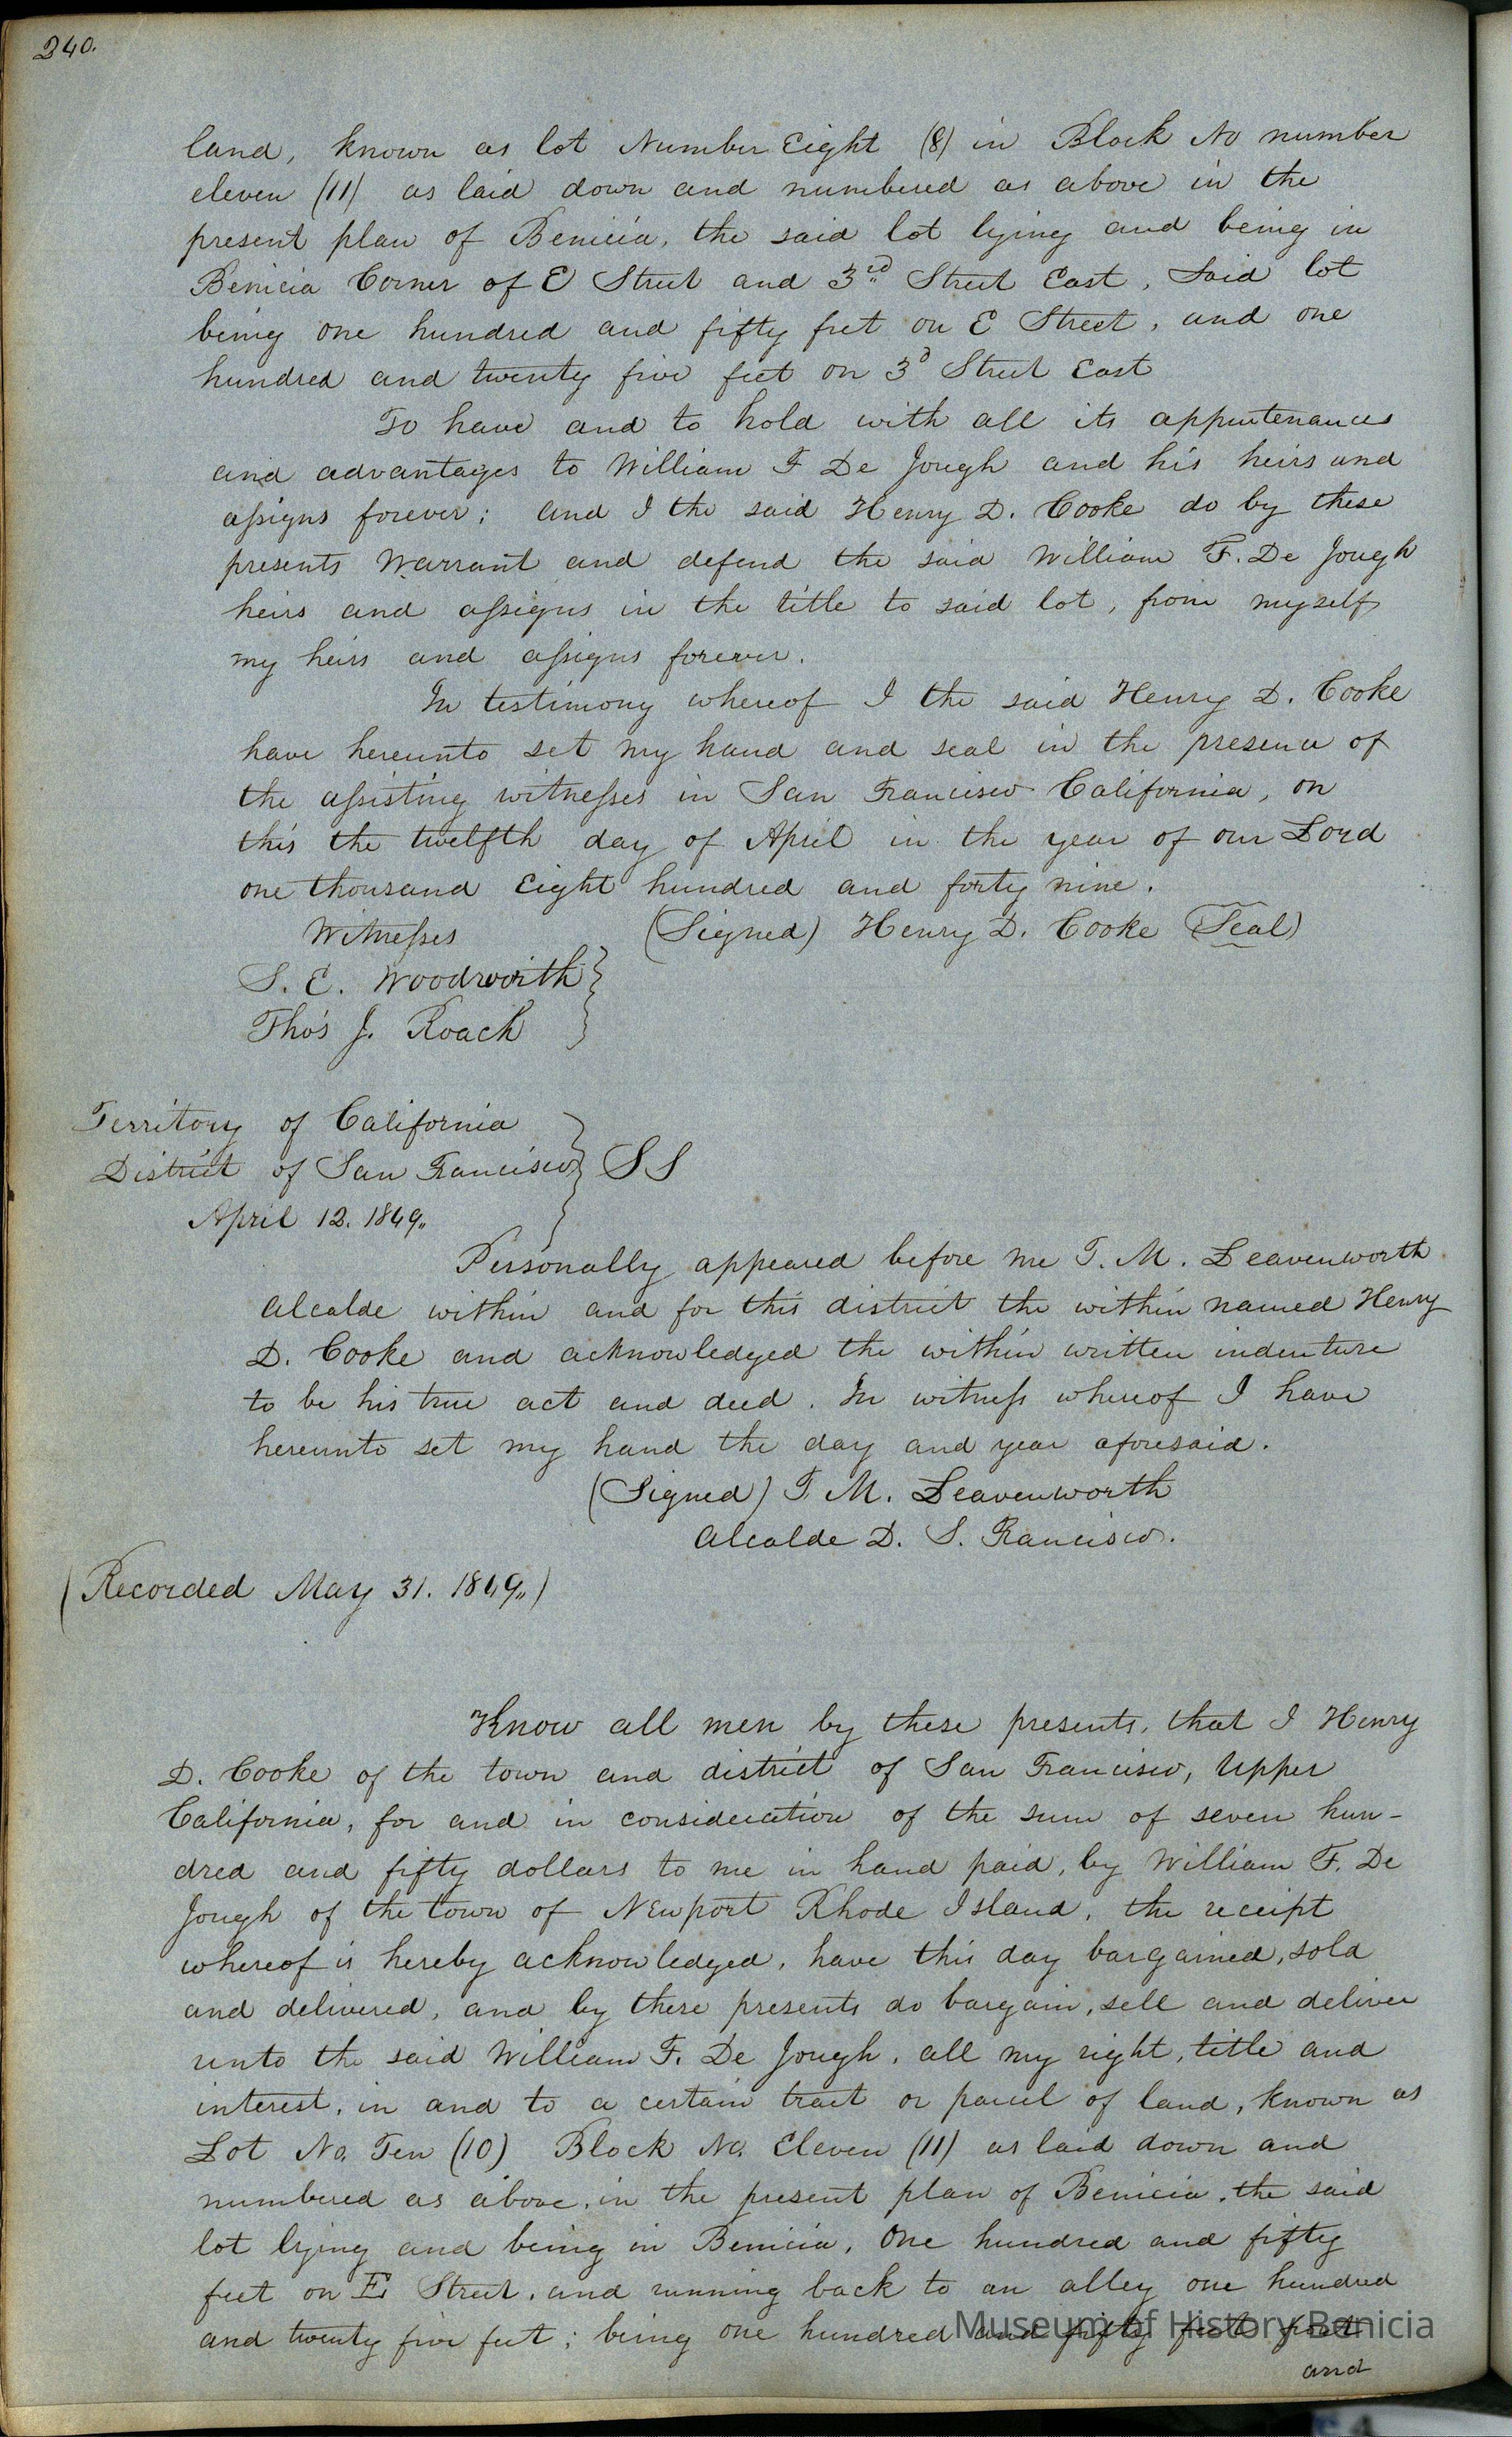 240.
land, known as lot Number Eight (8) in Block No number
eleven (11) as laid down and numbered as above in the
present plan of Benicia, the said lot lying and being in
Benicia Corner of E Street and 3rd Street East, Said lot
being one hundred and fifty feet on E Street, and one
hundred and twenty five feet on 3d Street East
To have and to hold with all its appurtenances
and advantages to William F De Jough and his heirs and
assigns forever; and I the said Henry D. Cooke do by these
presents Warrant and defend the said William F. De Jough
heirs and assigns in the title to said lot, from myself
my heirs and assigns forever.
In testimony whereof I the said Henry D. Cooke
have hereunto set my hand and seal in the presence of
the assisting witnesses in San Francisco California, on
this the twelfth day of April in the year of our Lord
one thousand Eight hundred and forty nine.
Witnesses (Signed) Henry D. Cooke (Seal)
S. E. Woodworth
Thos J. Roach
Territory of California
District of San Francisco } SS
April 12. 1849,,
Personally appeared before me T. M. Leavenworth
Alcalde within and for this district the within named Henry
D. Cooke and acknowledged the within written indenture
to be his true act and deed. In witness whereof I have
hereunto set my hand the day and year aforesaid.
(Signed) T. M. Leavenworth
Alcalde D. S. Francisco.
(Recorded May 31. 1849,,)
Know all men by these presents, that I Henry
D. Cooke of the town and district of San Francisco, Upper
California, for and in consideration of the sum of seven hun-
dred and fifty dollars to me in hand paid, by William F. De
Jough of the town of Newport Rhode Island, the receipt
whereof is hereby acknowledged, have this day bargained, sold
and delivered, and by these presents do bargain, sell and deliver
unto the said William F. De Jough, all my right, title and
interest, in and to a certain tract or parcel of land, known as
Lot No. Ten (10) Block No. Eleven (11) as laid down and
numbered as above, in the present plan of Benicia, the said
lot lying and being in Benicia, One hundred and fifty
feet on E Street, and running back to an alley one hundred
and twenty five feet; being one hundred and fifty feet front
and
Museum of History Benicia